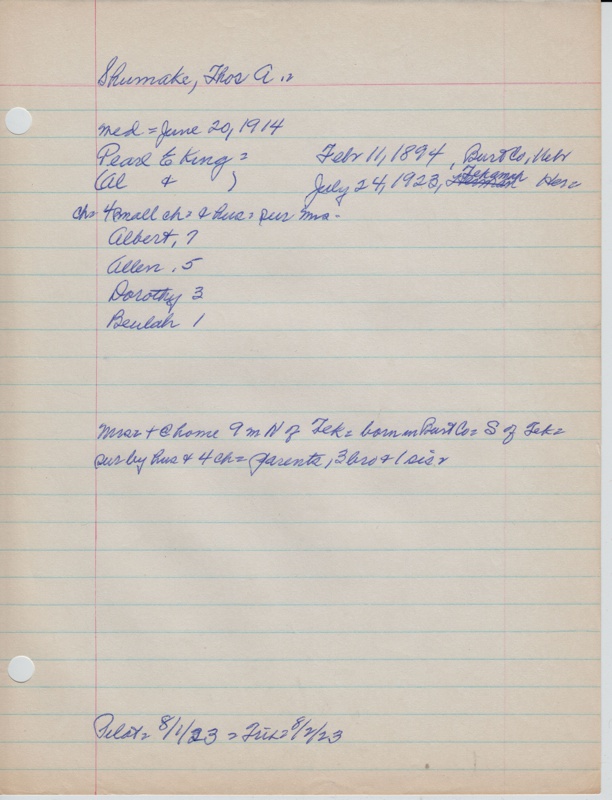 Shumake, Thos A
med = June 20, 1914
Pearl E King = Febr 11, 1894, Burt Co, Nebr
(Al & ) July 24, 1923, Tekamah
ch = 4 small ch = & hus = sur Mrs -
Albert, 7
Allen, 5
Dorothy 3
Beulah 1
Mrs = + @ home 9 m N of Tek = born in Burt Co = S of Tek =
sur by hus & 4 ch = parents, 3 bro & 1 sis
Pilot = 8/1/23 = 8/2/23